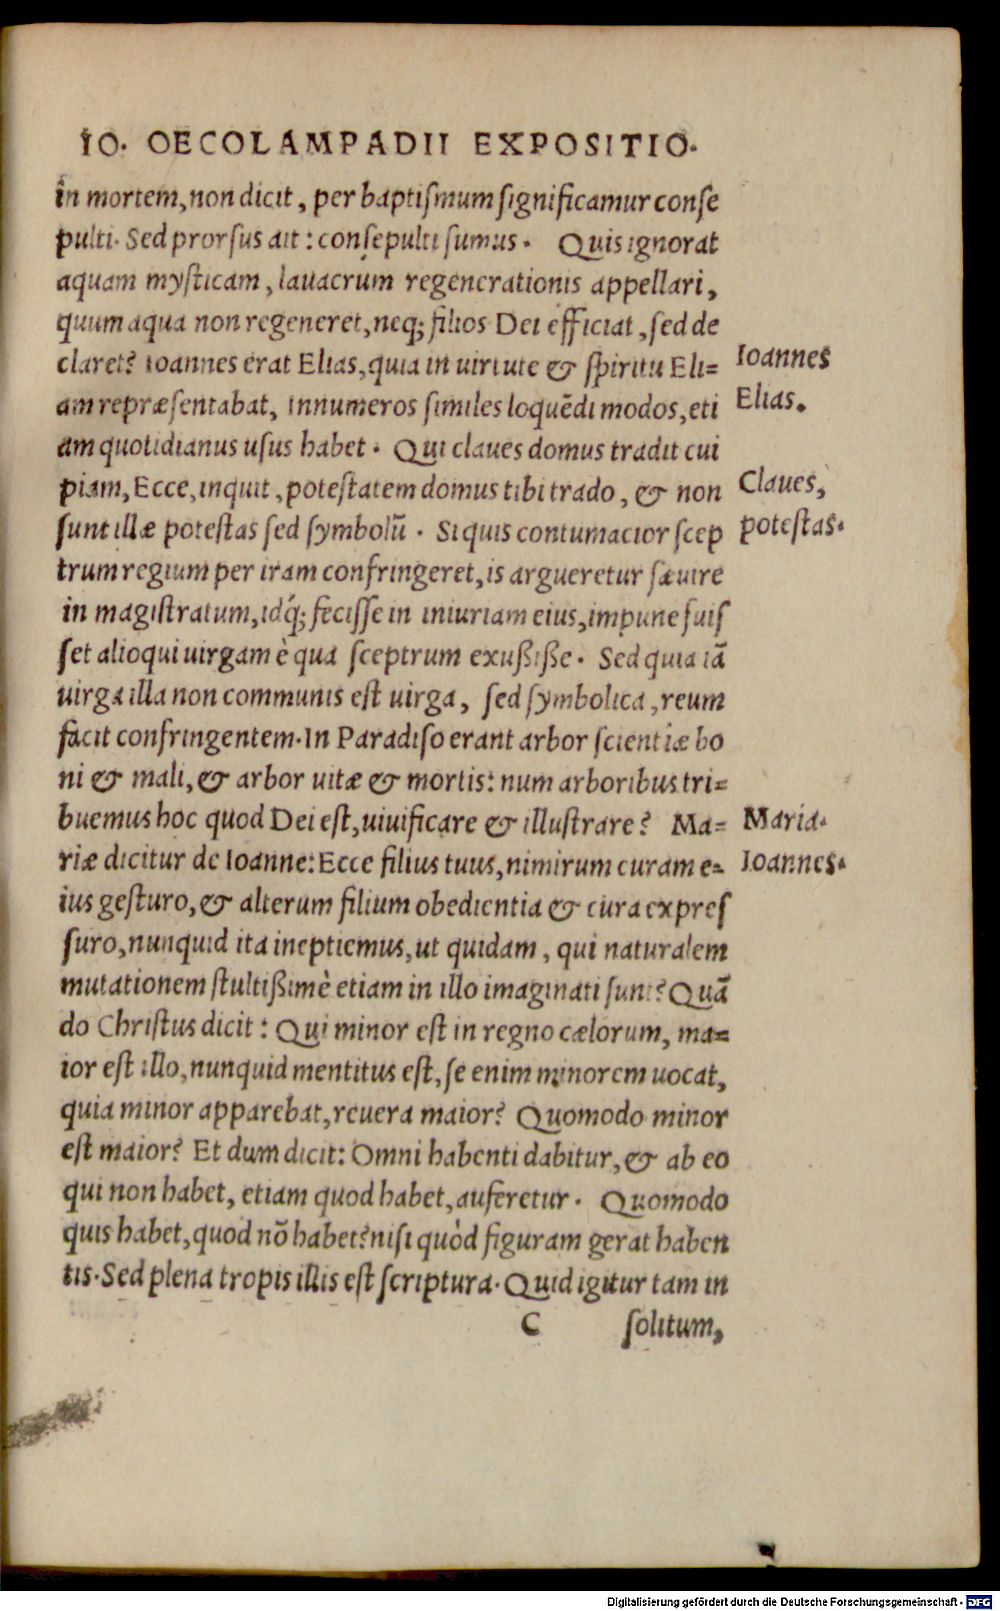 IO. OECOLAMPADII EXPOSITIO.
in mortem, non dicit, per baptiſmum ſignificamur conſe
pulti. Sed prorſus ait: conſepulti ſumus. Quis ignorat
aquam myſticam, lauacrum regenerationis appellari,
quum aqua non regeneret, neq; filios Dei efficiat, ſed de
claret? Ioannes erat Elias, quia in uirtute & ſpiritu Eli=
am repræſentabat, innumeros ſimiles loquēdi modos, eti
am quotidianus uſus habet. Qui claues domus tradit cui
piam, Ecce, inquit, poteſtatem domus tibi trado, & non
ſunt illæ poteſtas ſed ſymbolū. Si quis contumacior ſcep
trum regium per iram confringeret, is argueretur ſæuire
in magiſtratum, idq́; feciſſe in iniuriam eius, impune fuiſ
ſet alioqui uirgam è qua ſceptrum exuſßiße. Sed quia iā
uirga illa non communis eſt uirga, ſed ſymbolica, reum
facit confringentem. In Paradiſo erant arbor ſcientiæ bo
ni & mali, & arbor uitæ & mortis: num arboribus tri=
buemus hoc quod Dei eſt, uiuificare & illuſtrare? Ma=
riæ dicitur de Ioanne: Ecce filius tuus, nimirum curam e=
ius geſturo, & alterum filium obedientia & cura expreſ
ſuro, nunquid ita ineptiemus, ut quidam, qui naturalem
mutationem ſtultißimè etiam in illo imaginati ſunt? Quā
do Chriſtus dicit: Qui minor eſt in regno cælorum, ma=
ior eſt illo, nunquid mentitus eſt, ſe enim minorem uocat,
quia minor apparebat, reuera maior? Quomodo minor
eſt maior? Et dum dicit: Omni habenti dabitur, & ab eo
qui non habet, etiam quod habet, auferetur. Quomodo
quis habet, quod nō habet? niſi quòd figuram gerat haben
tis. Sed plena tropis illis eſt ſcriptura. Quid igitur tam in
C ſolitum,
Ioannes
Elias.
Claues,
poteſtas.
Maria.
Ioannes.
Digitalisierung gefördert durch die Deutsche Forschungsgemeinschaft - DFG